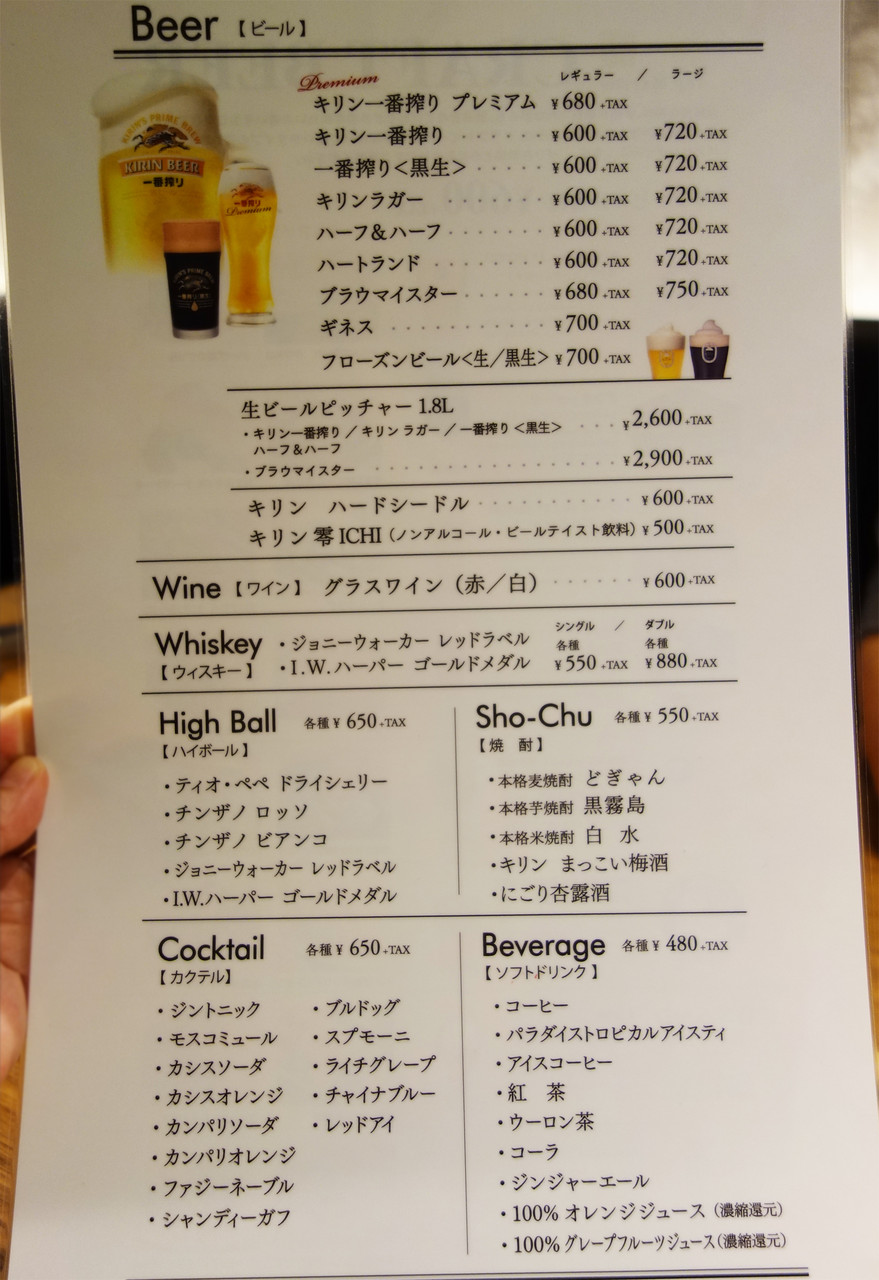 Beer 【ビール】
レギュラー ／ ラージ
Premium
キリン一番搾り プレミアム ¥680+TAX
キリン一番搾り ・・・・・・ ¥600+TAX ¥720+TAX
一番搾り＜黒生＞ ・・・・・ ¥600+TAX ¥720+TAX
キリンラガー ・・・・・・・ ¥600+TAX ¥720+TAX
ハーフ＆ハーフ ・・・・・・・ ¥600+TAX ¥720+TAX
ハートランド ・・・・・・・・ ¥600+TAX ¥720+TAX
ブラウマイスター ・・・・・・ ¥680+TAX ¥750+TAX
ギネス ・・・・・・・・・・・ ¥700+TAX
フローズンビール＜生／黒生＞ ¥700+TAX
KIRIN'S PRIME BREW
KIRIN BEER
一番搾り
一番搾り
Premium
KIRIN'S PRIME BREW
一番搾り 黒生
生ビールピッチャー 1.8L
・キリン一番搾り ／ キリン ラガー ／ 一番搾り＜黒生＞ ・・・ ¥2,600+TAX
ハーフ＆ハーフ
・ブラウマイスター ・・・・・・・・・・・・・・・・・・ ¥2,900+TAX
キリン ハードシードル ・・・・・・・・・・・・ ¥600+TAX
キリン 零ICHI（ノンアルコール・ビールテイスト飲料）¥500+TAX
Wine 【ワイン】 グラスワイン（赤／白） ・・・・・・ ¥600+TAX
シングル ／ ダブル
Whiskey ・ジョニーウォーカー レッドラベル 各種 各種
【ウィスキー】 ・I.W.ハーパー ゴールドメダル ¥550+TAX ¥880+TAX
High Ball 各種 ¥650+TAX
【ハイボール】
・ティオ・ペペ ドライシェリー
・チンザノ ロッソ
・チンザノ ビアンコ
・ジョニーウォーカー レッドラベル
・I.W.ハーパー ゴールドメダル
Sho-Chu 各種 ¥550+TAX
【焼 酎】
・本格麦焼酎 どぎゃん
・本格芋焼酎 黒霧島
・本格米焼酎 白 水
・キリン まっこい梅酒
・にごり杏露酒
Cocktail 各種 ¥650+TAX
【カクテル】
・ジントニック
・モスコミュール
・カシスソーダ
・カシスオレンジ
・カンパリソーダ
・カンパリオレンジ
・ファジーネーブル
・シャンディーガフ
・ブルドッグ
・スプモーニ
・ライチグレープ
・チャイナブルー
・レッドアイ
Beverage 各種 ¥480+TAX
【ソフトドリンク】
・コーヒー
・パラダイストロピカルアイスティ
・アイスコーヒー
・紅 茶
・ウーロン茶
・コーラ
・ジンジャーエール
・100% オレンジジュース（濃縮還元）
・100% グレープフルーツジュース（濃縮還元）